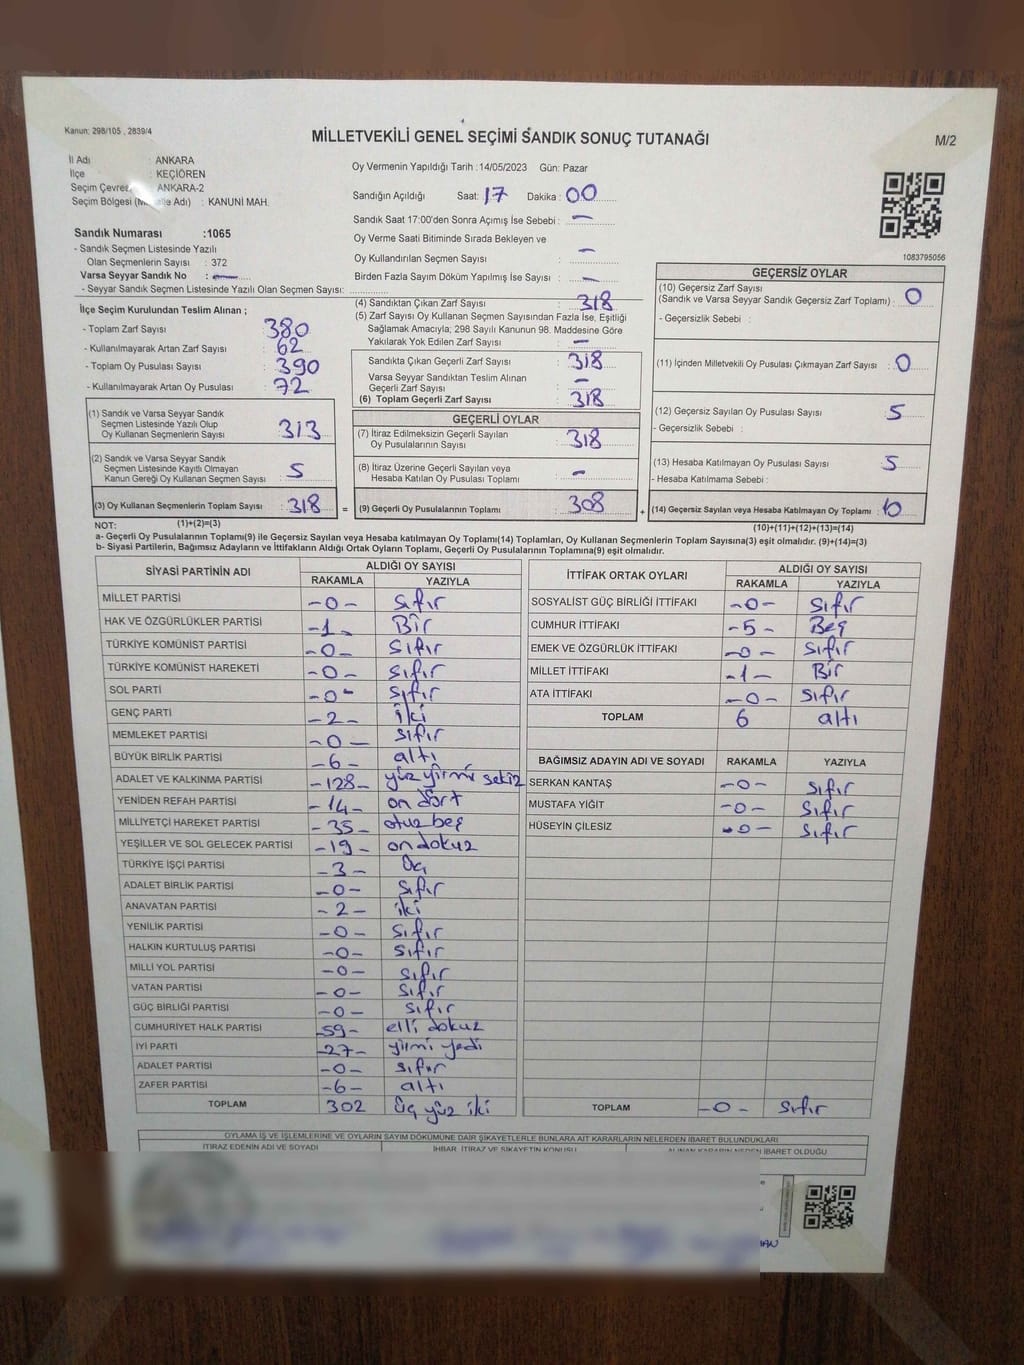 Kanun: 298/105 , 2839/4
MİLLETVEKİLİ GENEL SEÇİMİ SANDIK SONUÇ TUTANAĞI
M/2
İl Adı : ANKARA
İlçe : KEÇİÖREN
Seçim Çevresi : ANKARA-2
Seçim Bölgesi (Adı) : KANUNİ MAH.
Oy Vermenin Yapıldığı Tarih :14/05/2023 Gün: Pazar
Sandığın Açıldığı Saat: 17 Dakika : 00
Sandık Saat 17:00'den Sonra Açımış İse Sebebi : —
Oy Verme Saati Bitiminde Sırada Bekleyen ve
Oy Kullandırılan Seçmen Sayısı : —
Birden Fazla Sayım Döküm Yapılmış İse Sayısı : —
1083795056
Sandık Numarası :1065
- Sandık Seçmen Listesinde Yazılı
Olan Seçmenlerin Sayısı : 372
Varsa Seyyar Sandık No : —
- Seyyar Sandık Seçmen Listesinde Yazılı Olan Seçmen Sayısı:
İlçe Seçim Kurulundan Teslim Alınan ;
- Toplam Zarf Sayısı : 380
- Kullanılmayarak Artan Zarf Sayısı : 62
- Toplam Oy Pusulası Sayısı : 390
- Kullanılmayarak Artan Oy Pusulası : 72
(1) Sandık ve Varsa Seyyar Sandık
Seçmen Listesinde Yazılı Olup
Oy Kullanan Seçmenlerin Sayısı : 313
(2) Sandık ve Varsa Seyyar Sandık
Seçmen Listesinde Kayıtlı Olmayan
Kanun Gereği Oy Kullanan Seçmen Sayısı : 5
(3) Oy Kullanan Seçmenlerin Toplam Sayısı : 318 =
(1)+(2)=(3)
(4) Sandıktan Çıkan Zarf Sayısı : 318
(5) Zarf Sayısı Oy Kullanan Seçmen Sayısından Fazla İse, Eşitliği
Sağlamak Amacıyla; 298 Sayılı Kanunun 98. Maddesine Göre
Yakılarak Yok Edilen Zarf Sayısı : —
Sandıkta Çıkan Geçerli Zarf Sayısı : 318
Varsa Seyyar Sandıktan Teslim Alınan
Geçerli Zarf Sayısı : —
(6) Toplam Geçerli Zarf Sayısı : 318
GEÇERLİ OYLAR
(7) İtiraz Edilmeksizin Geçerli Sayılan
Oy Pusulalarının Sayısı : 318
(8) İtiraz Üzerine Geçerli Sayılan veya
Hesaba Katılan Oy Pusulası Toplamı : —
(9) Geçerli Oy Pusulalarının Toplamı : 308 +
GEÇERSİZ OYLAR
(10) Geçersiz Zarf Sayısı
(Sandık ve Varsa Seyyar Sandık Geçersiz Zarf Toplamı) : 0
- Geçersizlik Sebebi :
(11) İçinden Milletvekili Oy Pusulası Çıkmayan Zarf Sayısı : 0
(12) Geçersiz Sayılan Oy Pusulası Sayısı : 5
- Geçersizlik Sebebi :
(13) Hesaba Katılmayan Oy Pusulası Sayısı : 5
- Hesaba Katılmama Sebebi :
(14) Geçersiz Sayılan veya Hesaba Katılmayan Oy Toplamı : 10
(10)+(11)+(12)+(13)=(14)
NOT:
a- Geçerli Oy Pusulalarının Toplamı(9) ile Geçersiz Sayılan veya Hesaba katılmayan Oy Toplamı(14) Toplamları, Oy Kullanan Seçmenlerin Toplam Sayısına(3) eşit olmalıdır. (9)+(14)=(3)
b- Siyasi Partilerin, Bağımsız Adayların ve İttifakların Aldığı Ortak Oyların Toplamı, Geçerli Oy Pusulalarının Toplamına(9) eşit olmalıdır.
SİYASİ PARTİNİN ADI ALDIĞI OY SAYISI
RAKAMLA YAZIYLA
MİLLET PARTİSİ -0- sıfır
HAK VE ÖZGÜRLÜKLER PARTİSİ -1- Bir
TÜRKİYE KOMÜNİST PARTİSİ -0- sıfır
TÜRKİYE KOMÜNİST HAREKETİ -0- sıfır
SOL PARTİ -0- sıfır
GENÇ PARTİ -2- iki
MEMLEKET PARTİSİ -0- sıfır
BÜYÜK BİRLİK PARTİSİ -6- altı
ADALET VE KALKINMA PARTİSİ -128- yüz yirmi sekiz
YENİDEN REFAH PARTİSİ -14- on dört
MİLLİYETÇİ HAREKET PARTİSİ -35- otuz beş
YEŞİLLER VE SOL GELECEK PARTİSİ -19- on dokuz
TÜRKİYE İŞÇİ PARTİSİ -3- Üç
ADALET BİRLİK PARTİSİ -0- sıfır
ANAVATAN PARTİSİ -2- iki
YENİLİK PARTİSİ -0- sıfır
HALKIN KURTULUŞ PARTİSİ -0- sıfır
MİLLİ YOL PARTİSİ -0- sıfır
VATAN PARTİSİ -0- sıfır
GÜÇ BİRLİĞİ PARTİSİ -0- sıfır
CUMHURİYET HALK PARTİSİ -59- elli dokuz
İYİ PARTİ -27- yirmi yedi
ADALET PARTİSİ -0- sıfır
ZAFER PARTİSİ -6- altı
TOPLAM 302 üç yüz iki
İTTİFAK ORTAK OYLARI ALDIĞI OY SAYISI
RAKAMLA YAZIYLA
SOSYALİST GÜÇ BİRLİĞİ İTTİFAKI -0- sıfır
CUMHUR İTTİFAKI -5- Beş
EMEK VE ÖZGÜRLÜK İTTİFAKI -0- sıfır
MİLLET İTTİFAKI -1- Bir
ATA İTTİFAKI -0- sıfır
TOPLAM 6 altı
BAĞIMSIZ ADAYIN ADI VE SOYADI RAKAMLA YAZIYLA
SERKAN KANTAŞ -0- sıfır
MUSTAFA YİĞİT -0- sıfır
HÜSEYİN ÇİLESİZ -0- sıfır
TOPLAM -0- sıfır
OYLAMA İŞ VE İŞLEMLERİNE VE OYLARIN SAYIM DÖKÜMÜNE DAİR ŞİKAYETLERLE BUNLARA AİT KARARLARIN NELERDEN İBARET BULUNDUKLARI
İTİRAZ EDENİN ADI VE SOYADI İHBAR, İTİRAZ VE ŞİKAYETİN KONUSU ALINAN KARARIN NEDEN İBARET OLDUĞU